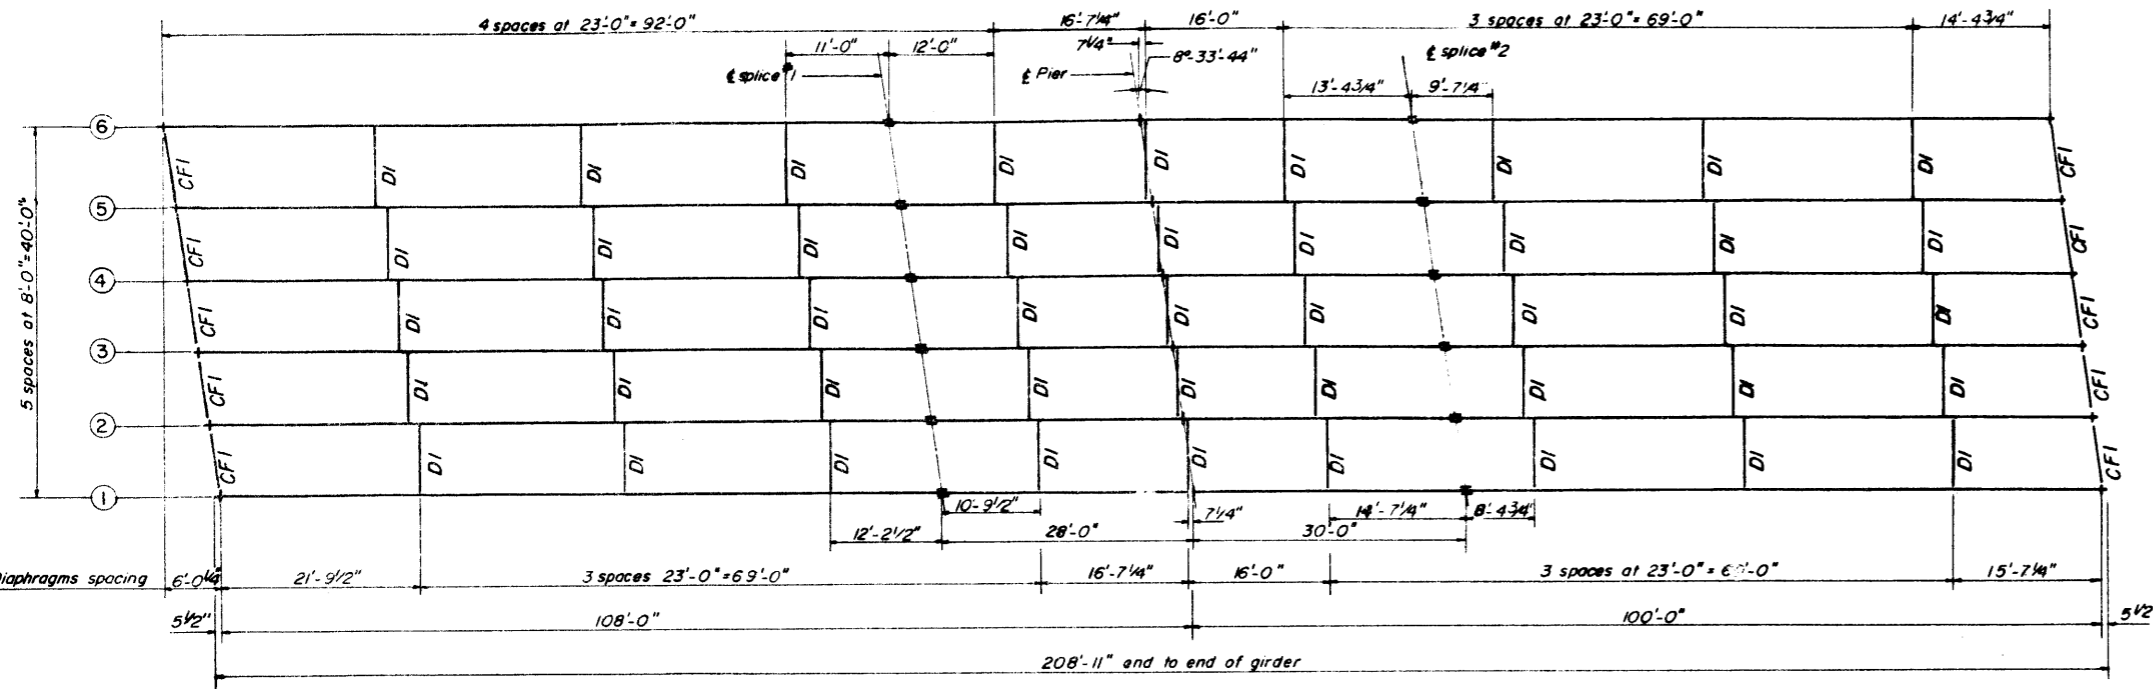 4 spaces at 23'-0" = 92'-0"
16'-7 1/4"
16'-0"
3 spaces at 23'-0" = 69'-0"
14'-4 3/4"
11'-0"
12'-0"
7 1/4"
8°-33'-44"
℄ splice #1
℄ Pier
℄ splice #2
13'-4 3/4"
9'-7 1/4"
6
CF1 D1 D1 D1 D1 D1 D1 D1 D1 D1 CF1
5
CF1 D1 D1 D1 D1 D1 D1 D1 D1 D1 CF1
4
CF1 D1 D1 D1 D1 D1 D1 D1 D1 D1 CF1
3
CF1 D1 D1 D1 D1 D1 D1 D1 D1 D1 CF1
2
CF1 D1 D1 D1 D1 D1 D1 D1 D1 D1 CF1
1
5 spaces at 8'-0" = 40'-0"
10'-9 1/2"
7 1/4"
14'-7 1/4"
8'-4 3/4"
12'-2 1/2"
28'-0"
30'-0"
Diaphragms spacing
6'-0 1/4"
21'-9 1/2"
3 spaces 23'-0" = 69'-0"
16'-7 1/4"
16'-0"
3 spaces at 23'-0" =
15'-7 1/4"
5 1/2"
108'-0"
100'-0"
5 1/2
208'-11" end to end of girder